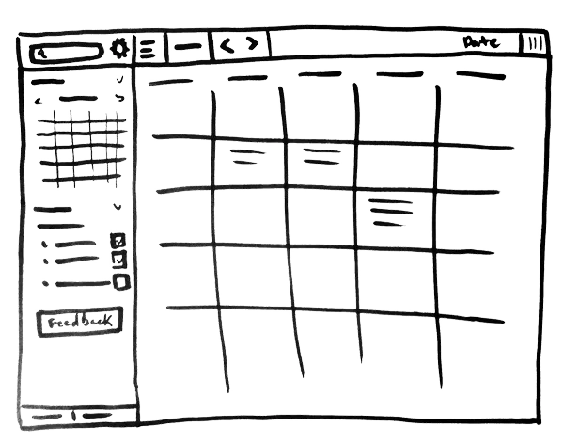 Date
Feedback